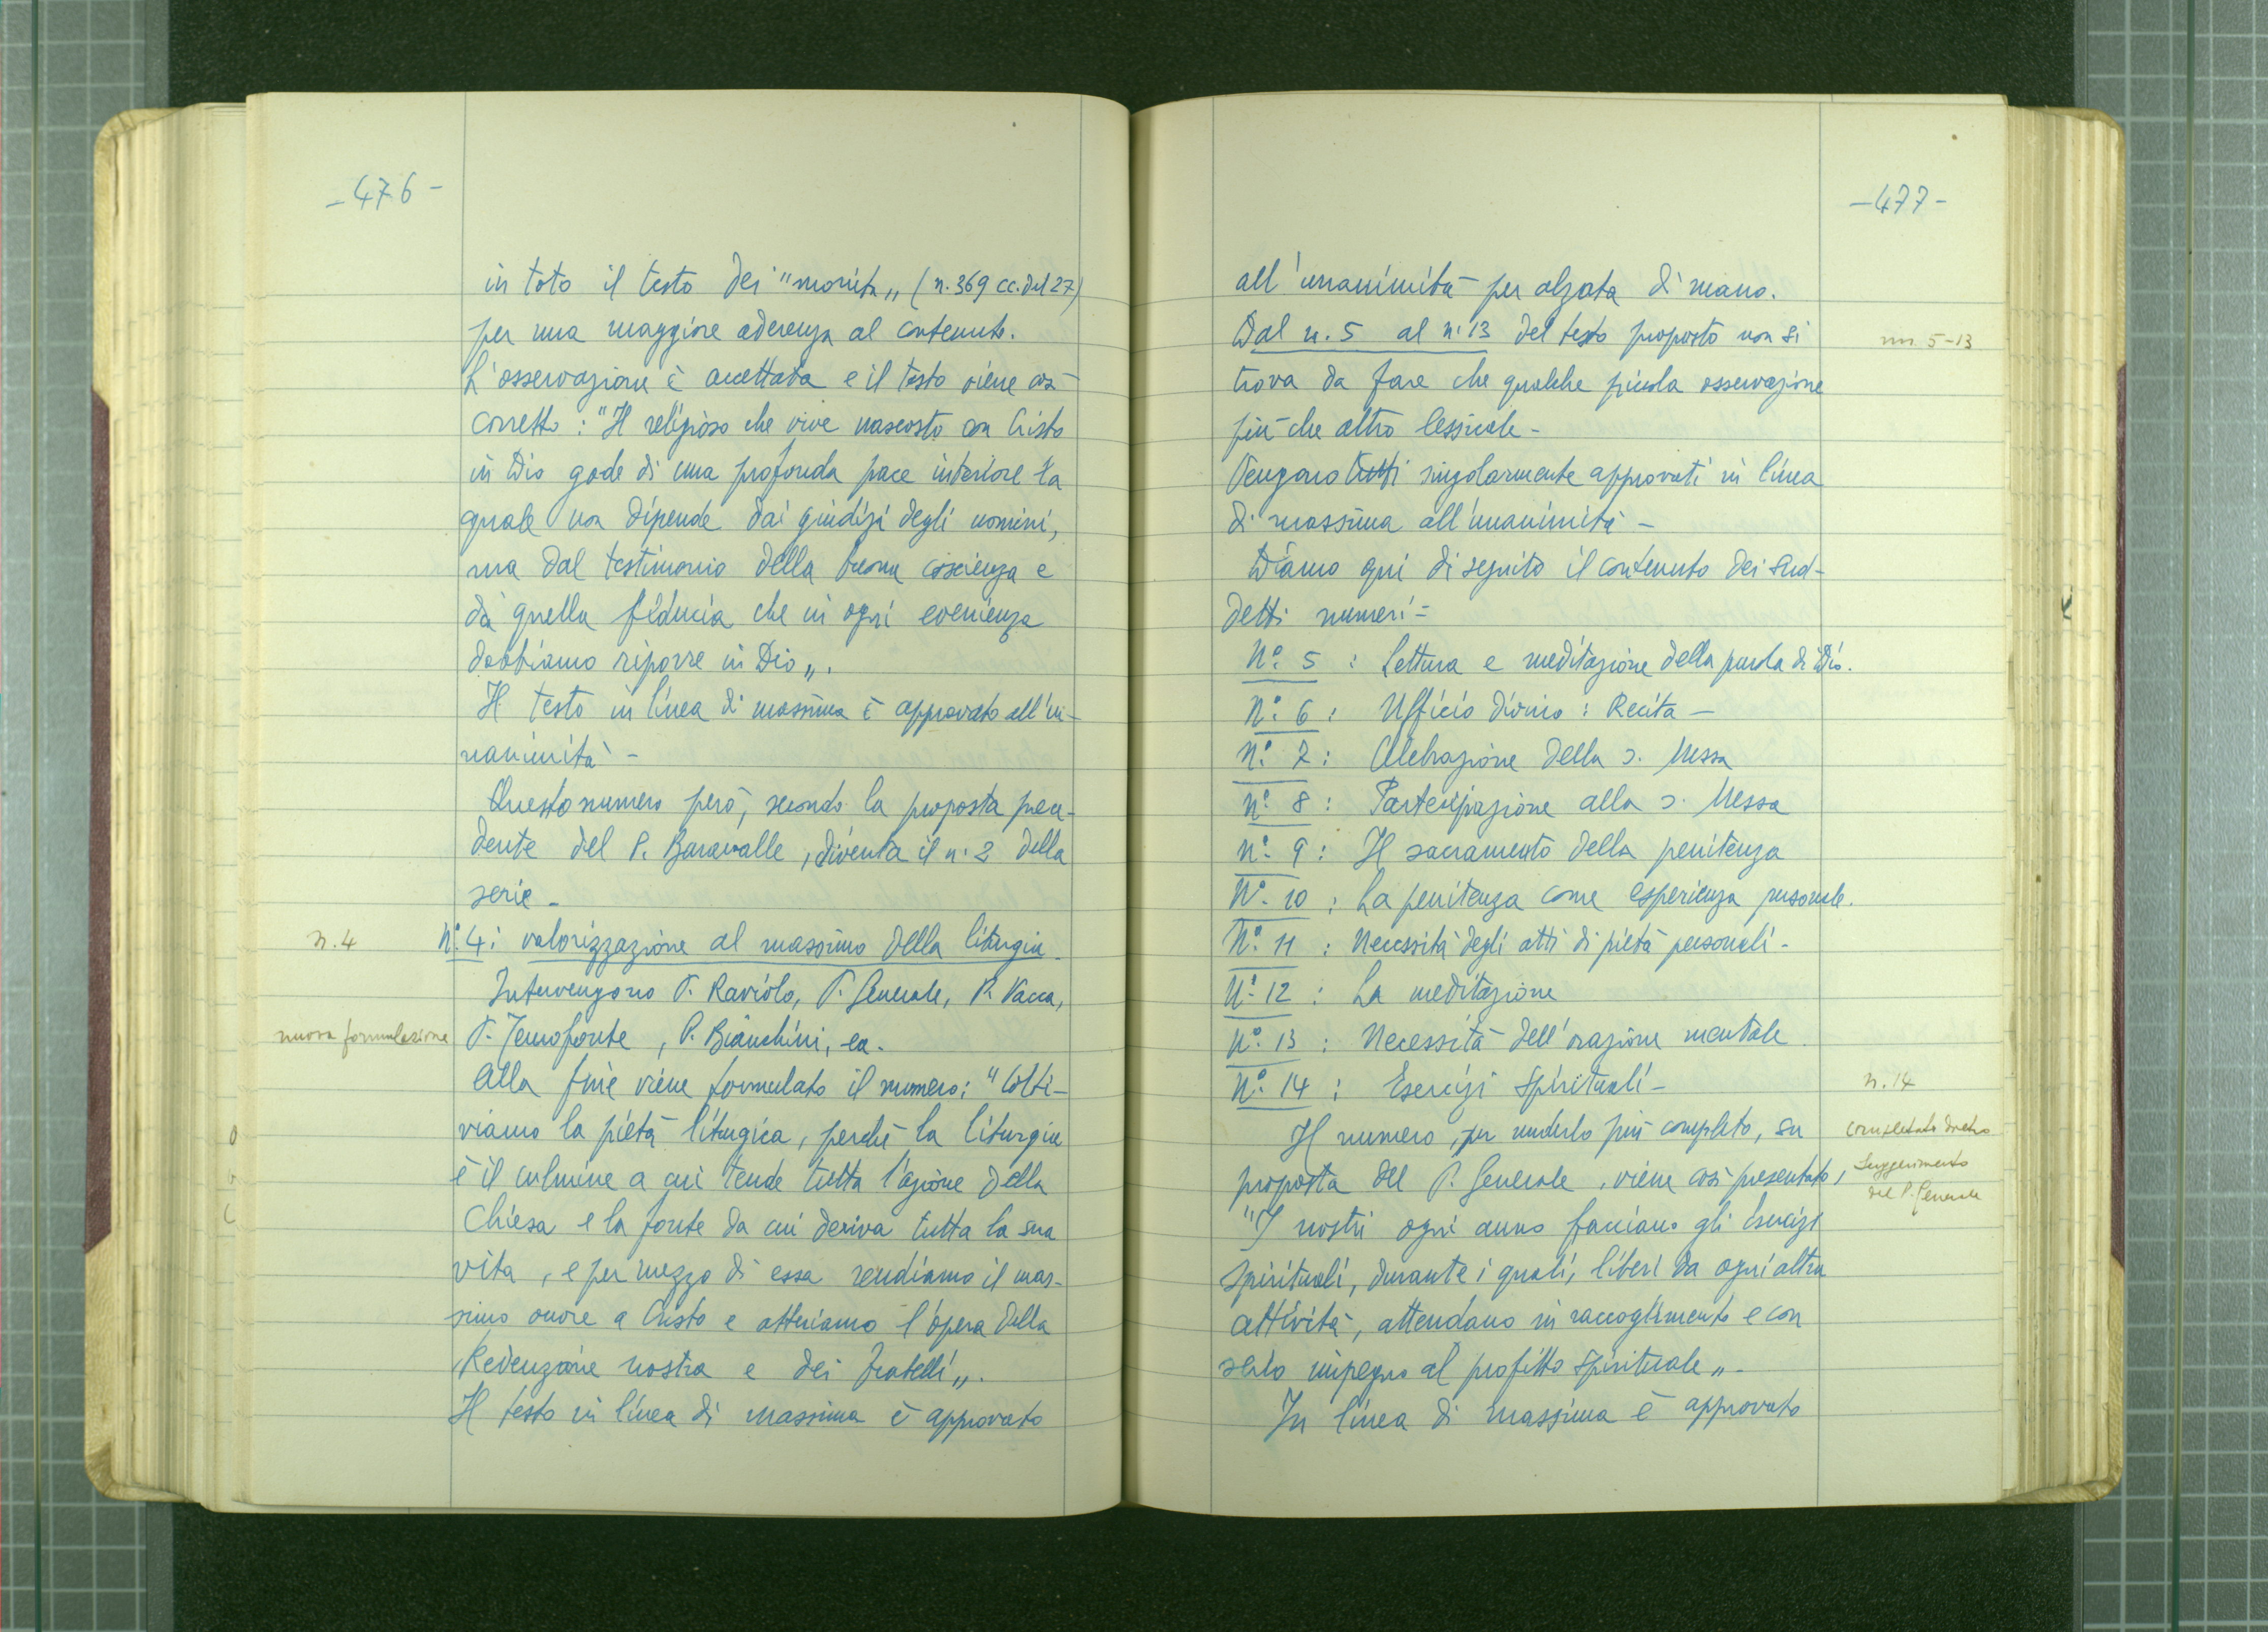 -476-
in toto il testo dei "monita„ (n. 369 cc. del 27)
per una maggiore aderenza al contenuto.
L'osservazione è accettata e il testo viene così
corretto: "Il religioso che vive nascosto con Cristo
in Dio gode di una profonda pace interiore la
quale non dipende dai giudizi degli uomini,
ma dal testimonio della buona coscienza e
da quella fiducia che in ogni evenienza
dobbiamo riporre in Dio„.
Il testo in linea di massima è approvato all'u-
nanimità -
Questo numero però, secondo la proposta prece-
dente del P. Baravalle, diventa il n. 2 della
serie -
n. 4
N°. 4: valorizzazione al massimo della liturgia -
Intervengono P. Raviolo, P. Generale, P. Vacca,
nuova formulazione
P. Temofonte, P. Bianchini, ea.
Alla fine viene formulato il numero: "Colti-
viamo la pietà liturgica, perchè la liturgia
è il culmine a cui tende tutta l'azione della
Chiesa e la fonte da cui deriva tutta la sua
vita, e per mezzo di essa rendiamo il mas-
simo onore a Cristo e attuiamo l'opera della
Redenzione nostra e dei fratelli„.
Il testo in linea di massima è approvato
-477-
all'unanimità per alzata di mano.
Dal n. 5 al n. 13 del testo proposto non si
nn. 5-13
trova da fare che qualche piccola osservazione
più che altro lessicale -
Vengono tutti singolarmente approvati in linea
di massima all'unanimità -
Diamo qui di seguito il contenuto dei sud-
detti numeri -
N°. 5 : Lettura e meditazione della parola di Dio.
N°. 6 : Ufficio divino : Recita -
N°. 7 : Celebrazione della s. Messa
n°. 8 : Partecipazione alla s. Messa
n°. 9 : Il sacramento della penitenza
N°. 10 : La penitenza come esperienza personale.
N°. 11 : Necessità degli atti di pietà personali -
N°. 12 : La meditazione
N°. 13 : Necessità dell'orazione mentale
N°. 14 : Esercizi spirituali -
n. 14
Il numero, per renderlo più completo, su
completato dietro
proposta del P. Generale, viene così presentato,
suggerimento
del P. Generale
"I nostri ogni anno facciano gli Esercizi
spirituali, durante i quali, liberi da ogni altra
attività, attendano in raccoglimento e con
serio impegno al profitto spirituale„ -
In linea di massima è approvato